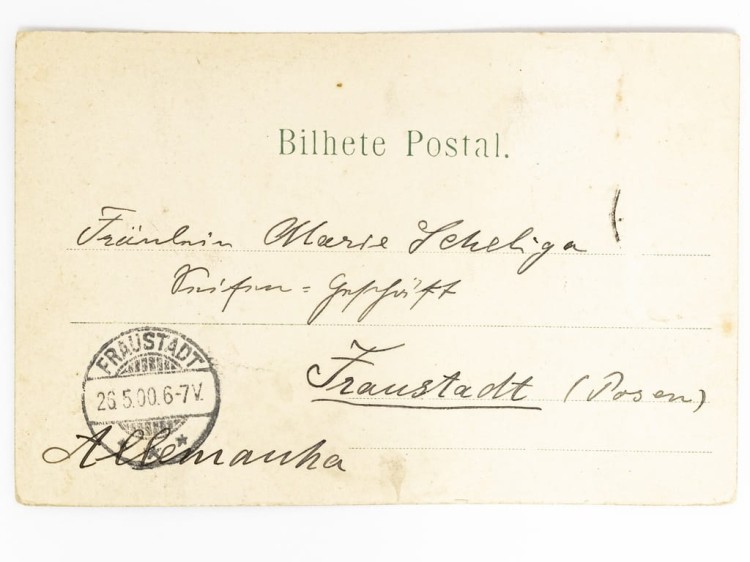 Bilhete Postal.
Fräulein Marie Scheliga
Seifen=Geschäft
Fraustadt (Posen)
FRAUSTADT
26.5.00.6-7V.
Allemanha